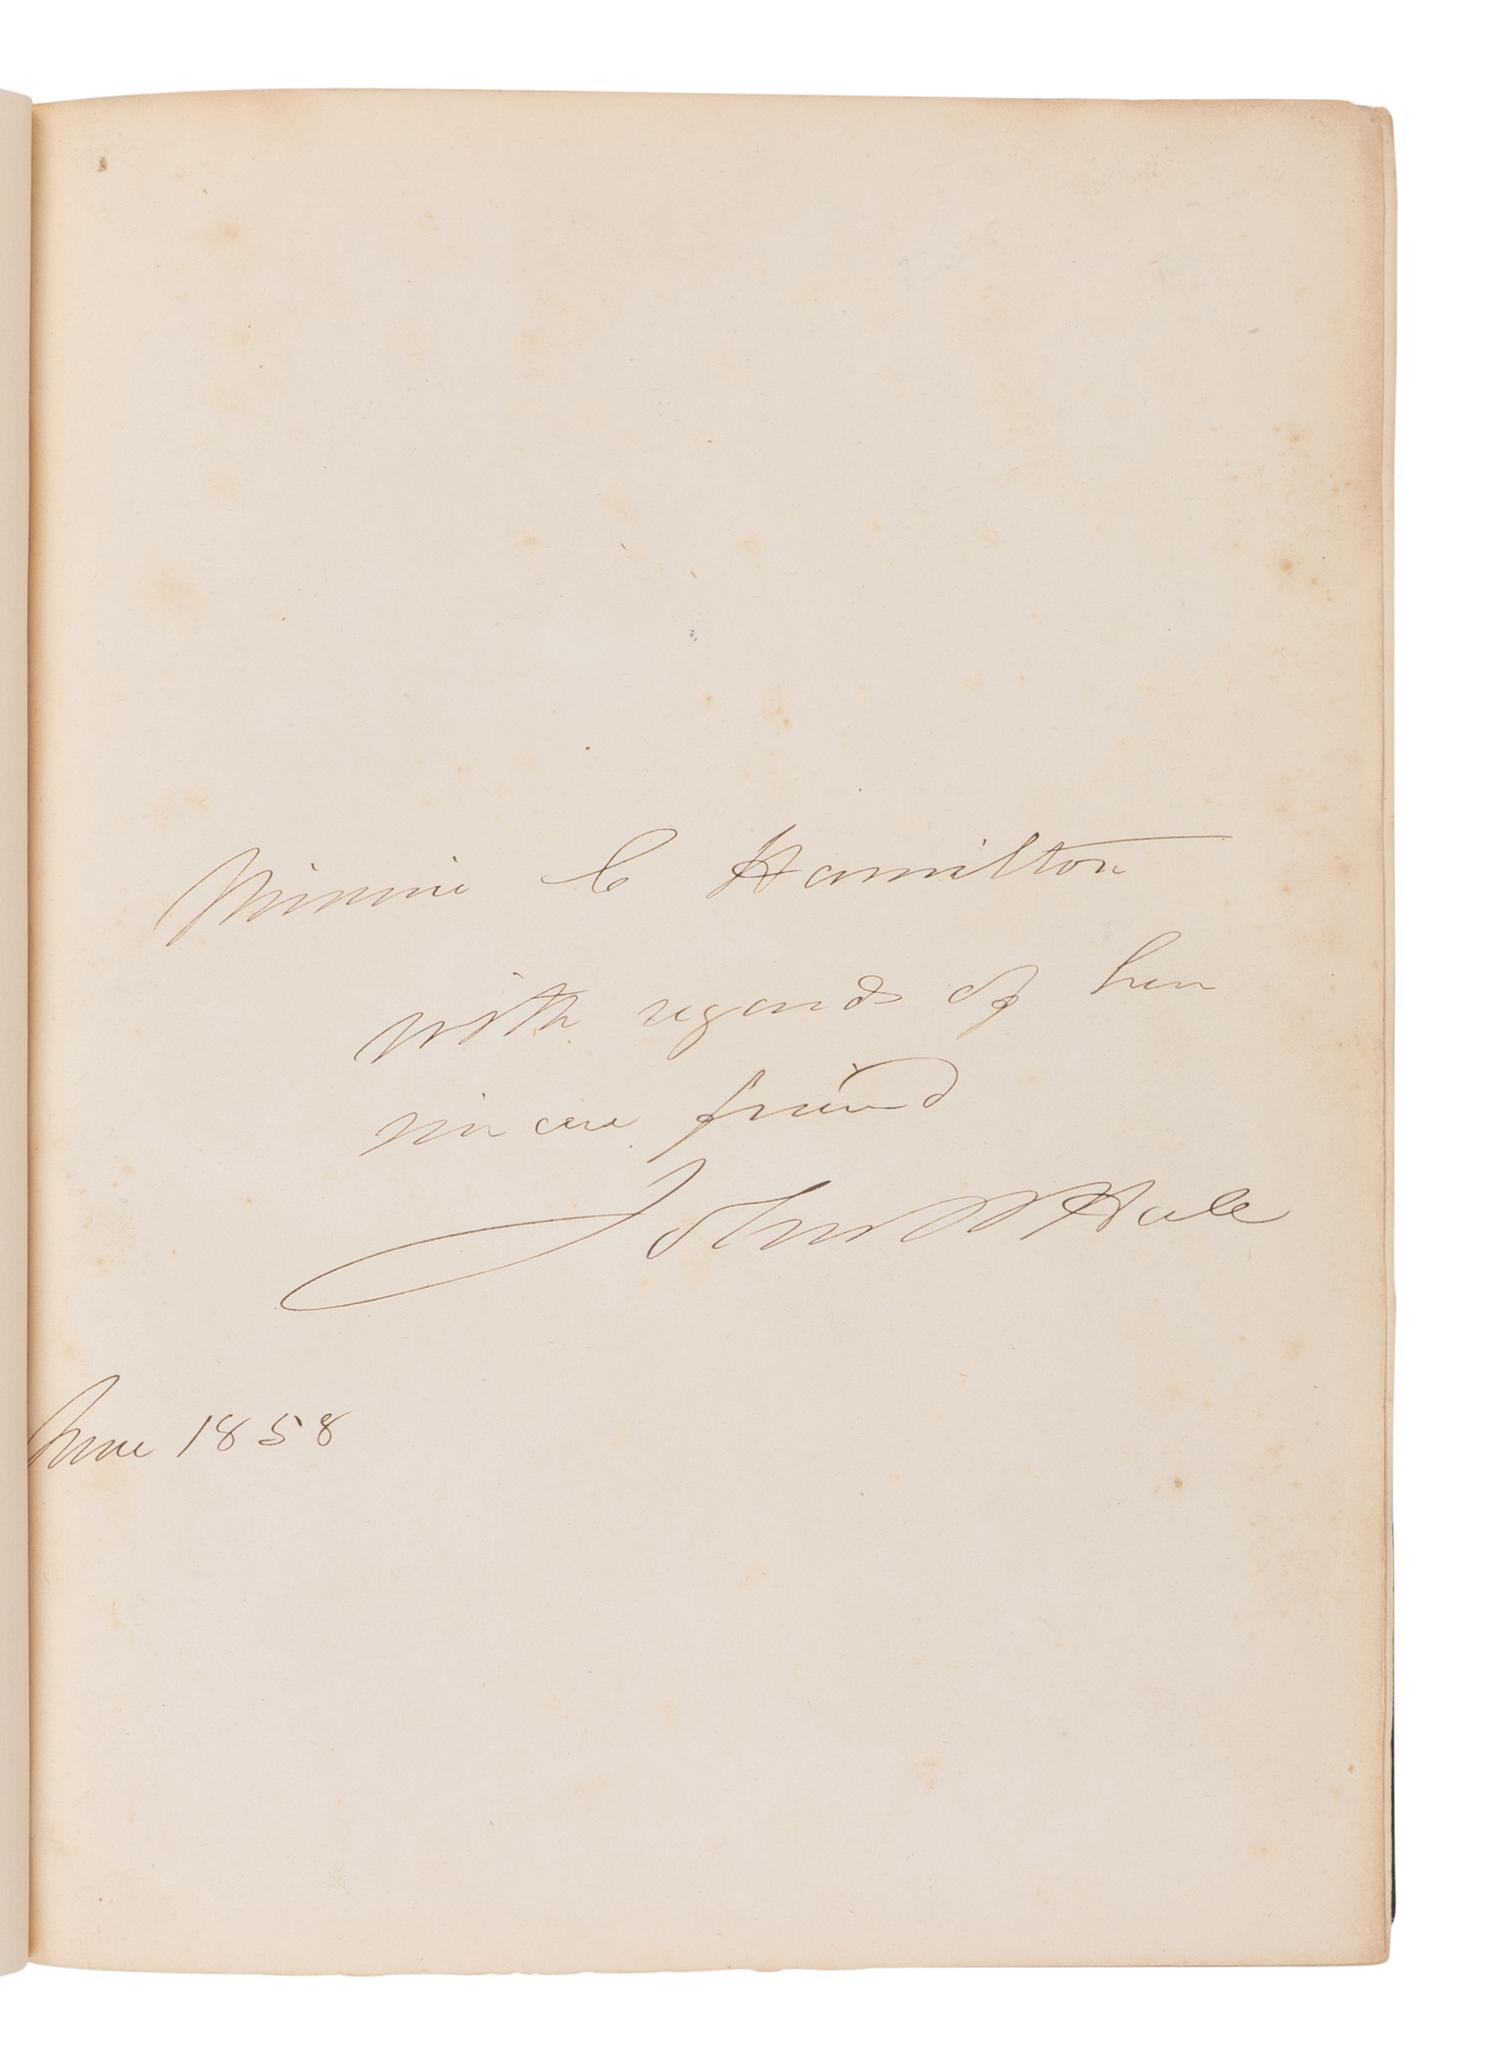 Minnie C Hamilton
with regards of her
sincere friend
John P Hale
June 1858